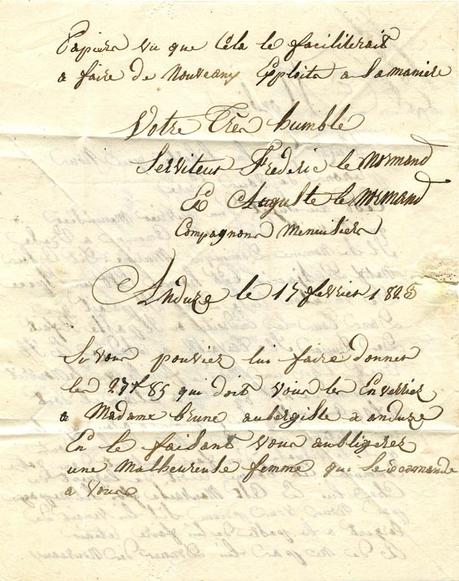 Papiers vu que cela le faciliterait
a faire de nouveaux Exploits a sa maniere
Votre Très humble
Serviteur Frederic le Normand
Et Auguste le Normand
Compagnons Menuisiers
Anduze le 17 fevrier 1823
Si vous pouviez lui faire donner
les 27f 85 qui doit vous les Envoyer
a Madame Brune aubergiste a anduze
En le faisant vous aubligerez
une Malheureuse femme que se recomande
a vous